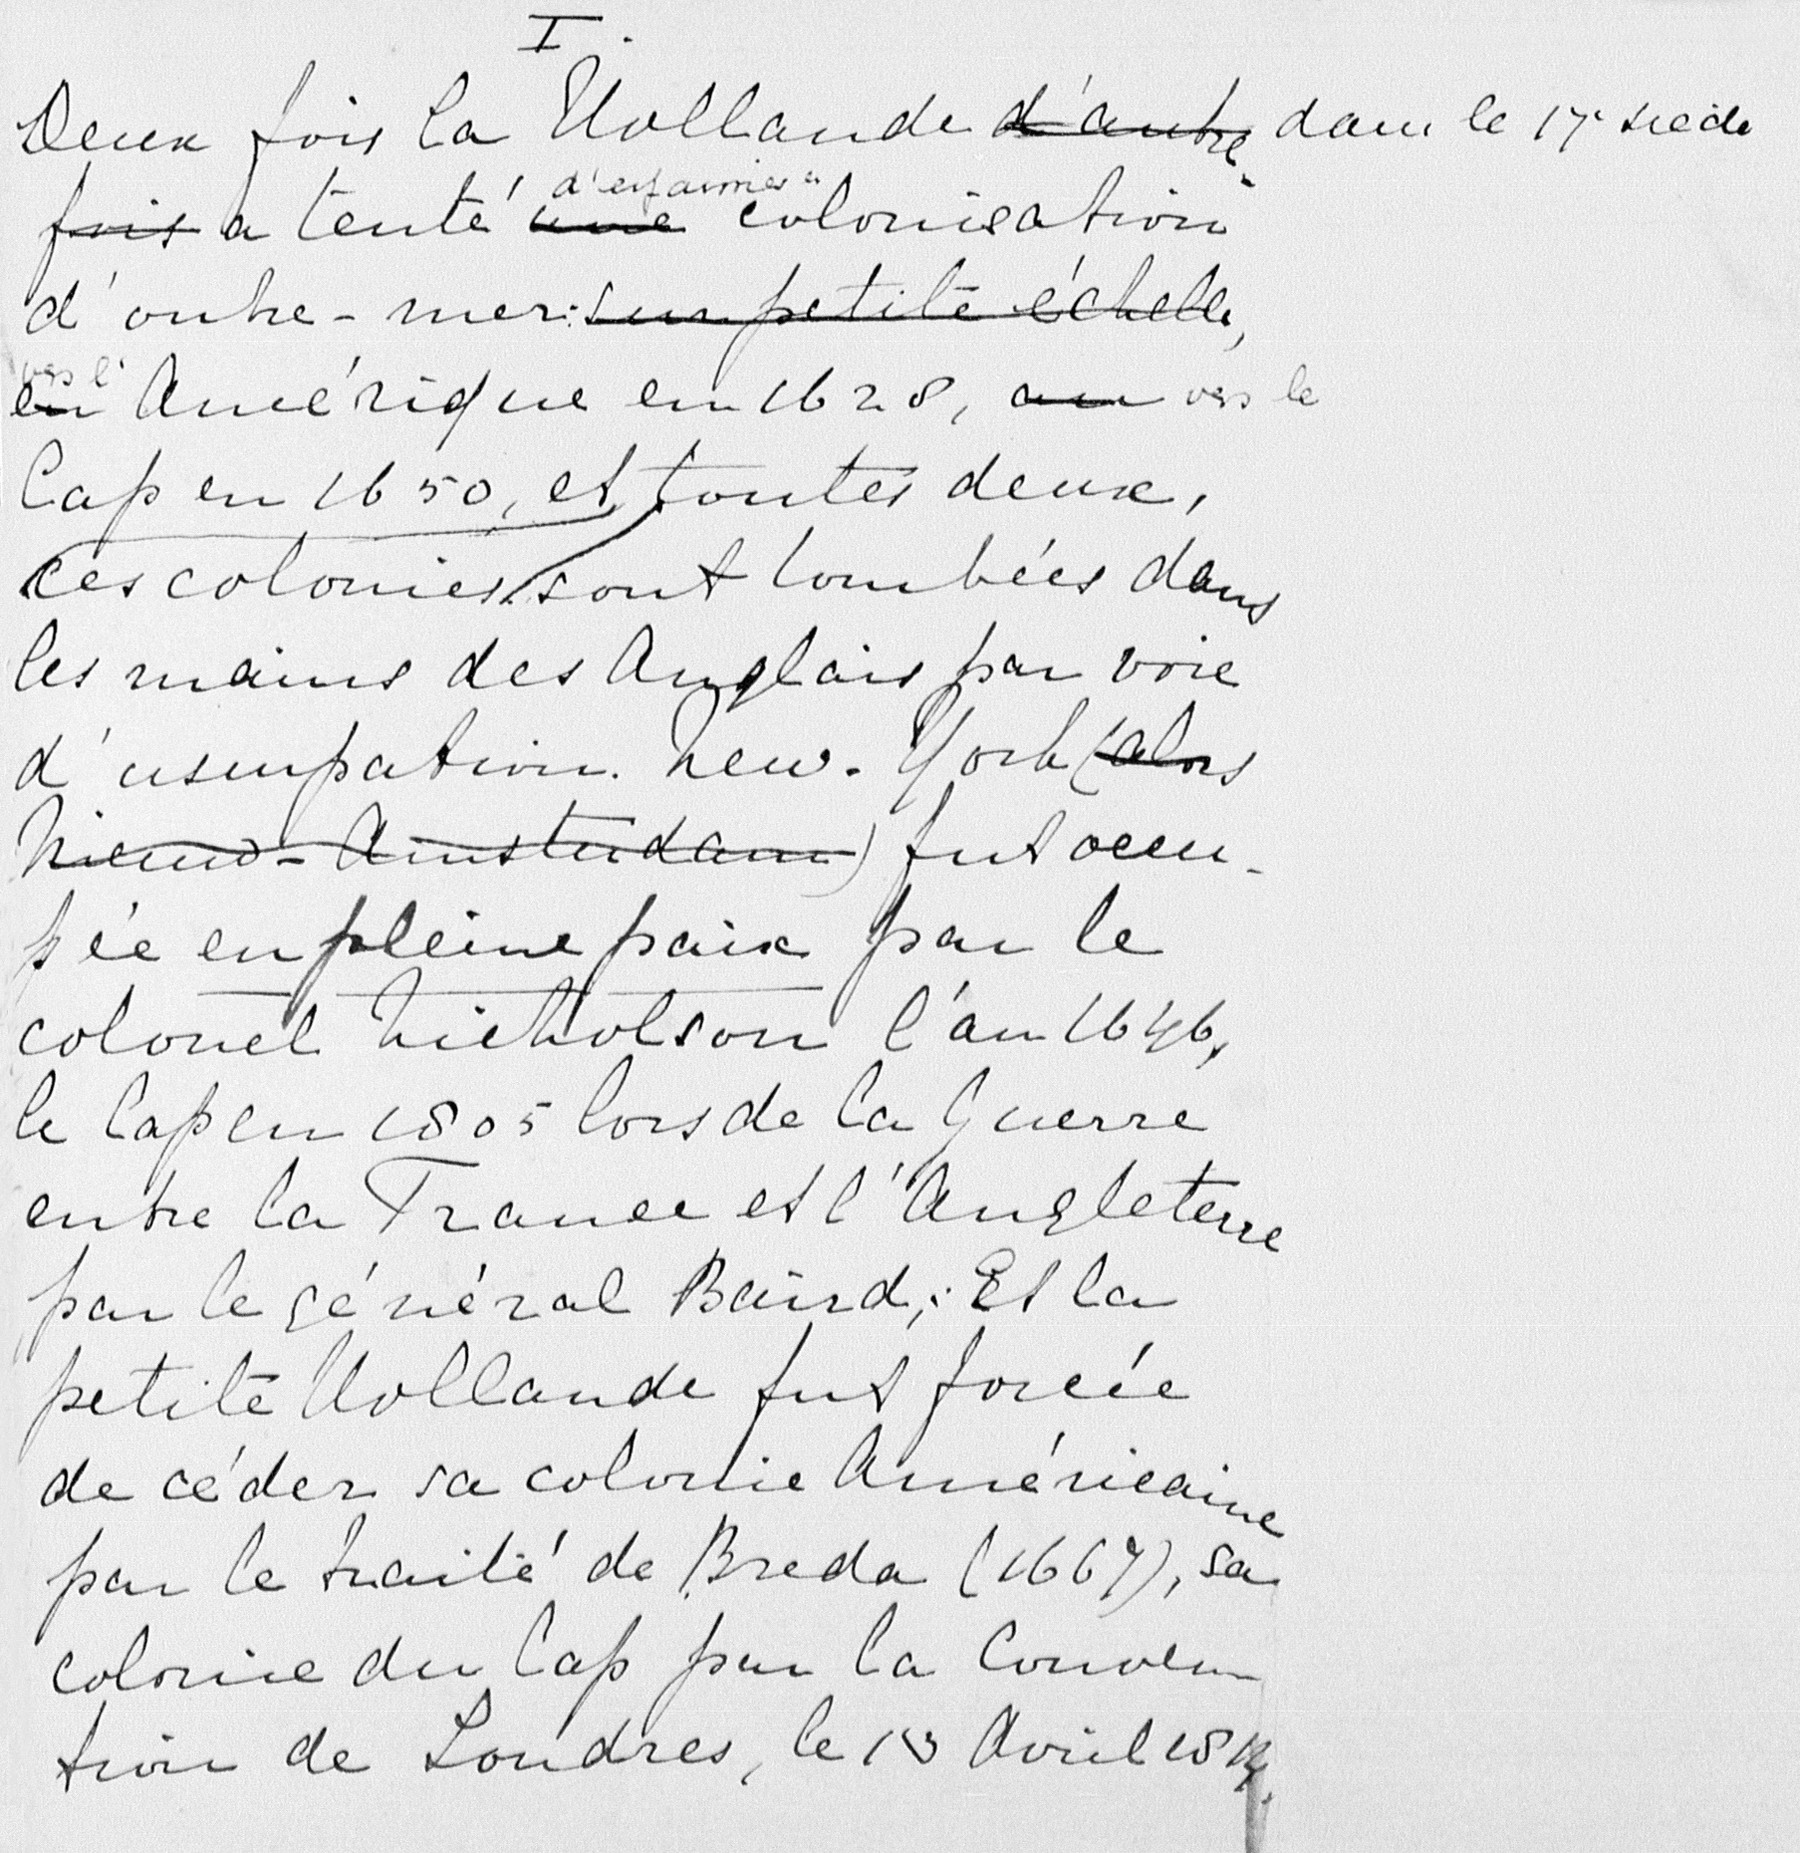 I.
Deux fois la Hollande d'autre dans le 17e siècle
d'essaimer
fois a tenté une colonisation
d'outre-mer: sur petite échelle,
vers l'
en Amérique en 1628, au vers le
Cap en 1650, et toutes deux,
ces colonies sont tombées dans
les mains des Anglais par voie
d'usurpation. New-York (alors
Nieuw-Amsterdam) fut occu-
pée en pleine paix par le
colonel Nicholson l'an 1646,
le Cap en 1805 lors de la guerre
entre la France et l'Angleterre
par le général Baird; Et la
petite Hollande fut forcée
de céder sa colonie Américaine
par le traité de Breda (1667), sa
colonie du Cap par la Conven
tion de Londres, le 13 Avril 1814.